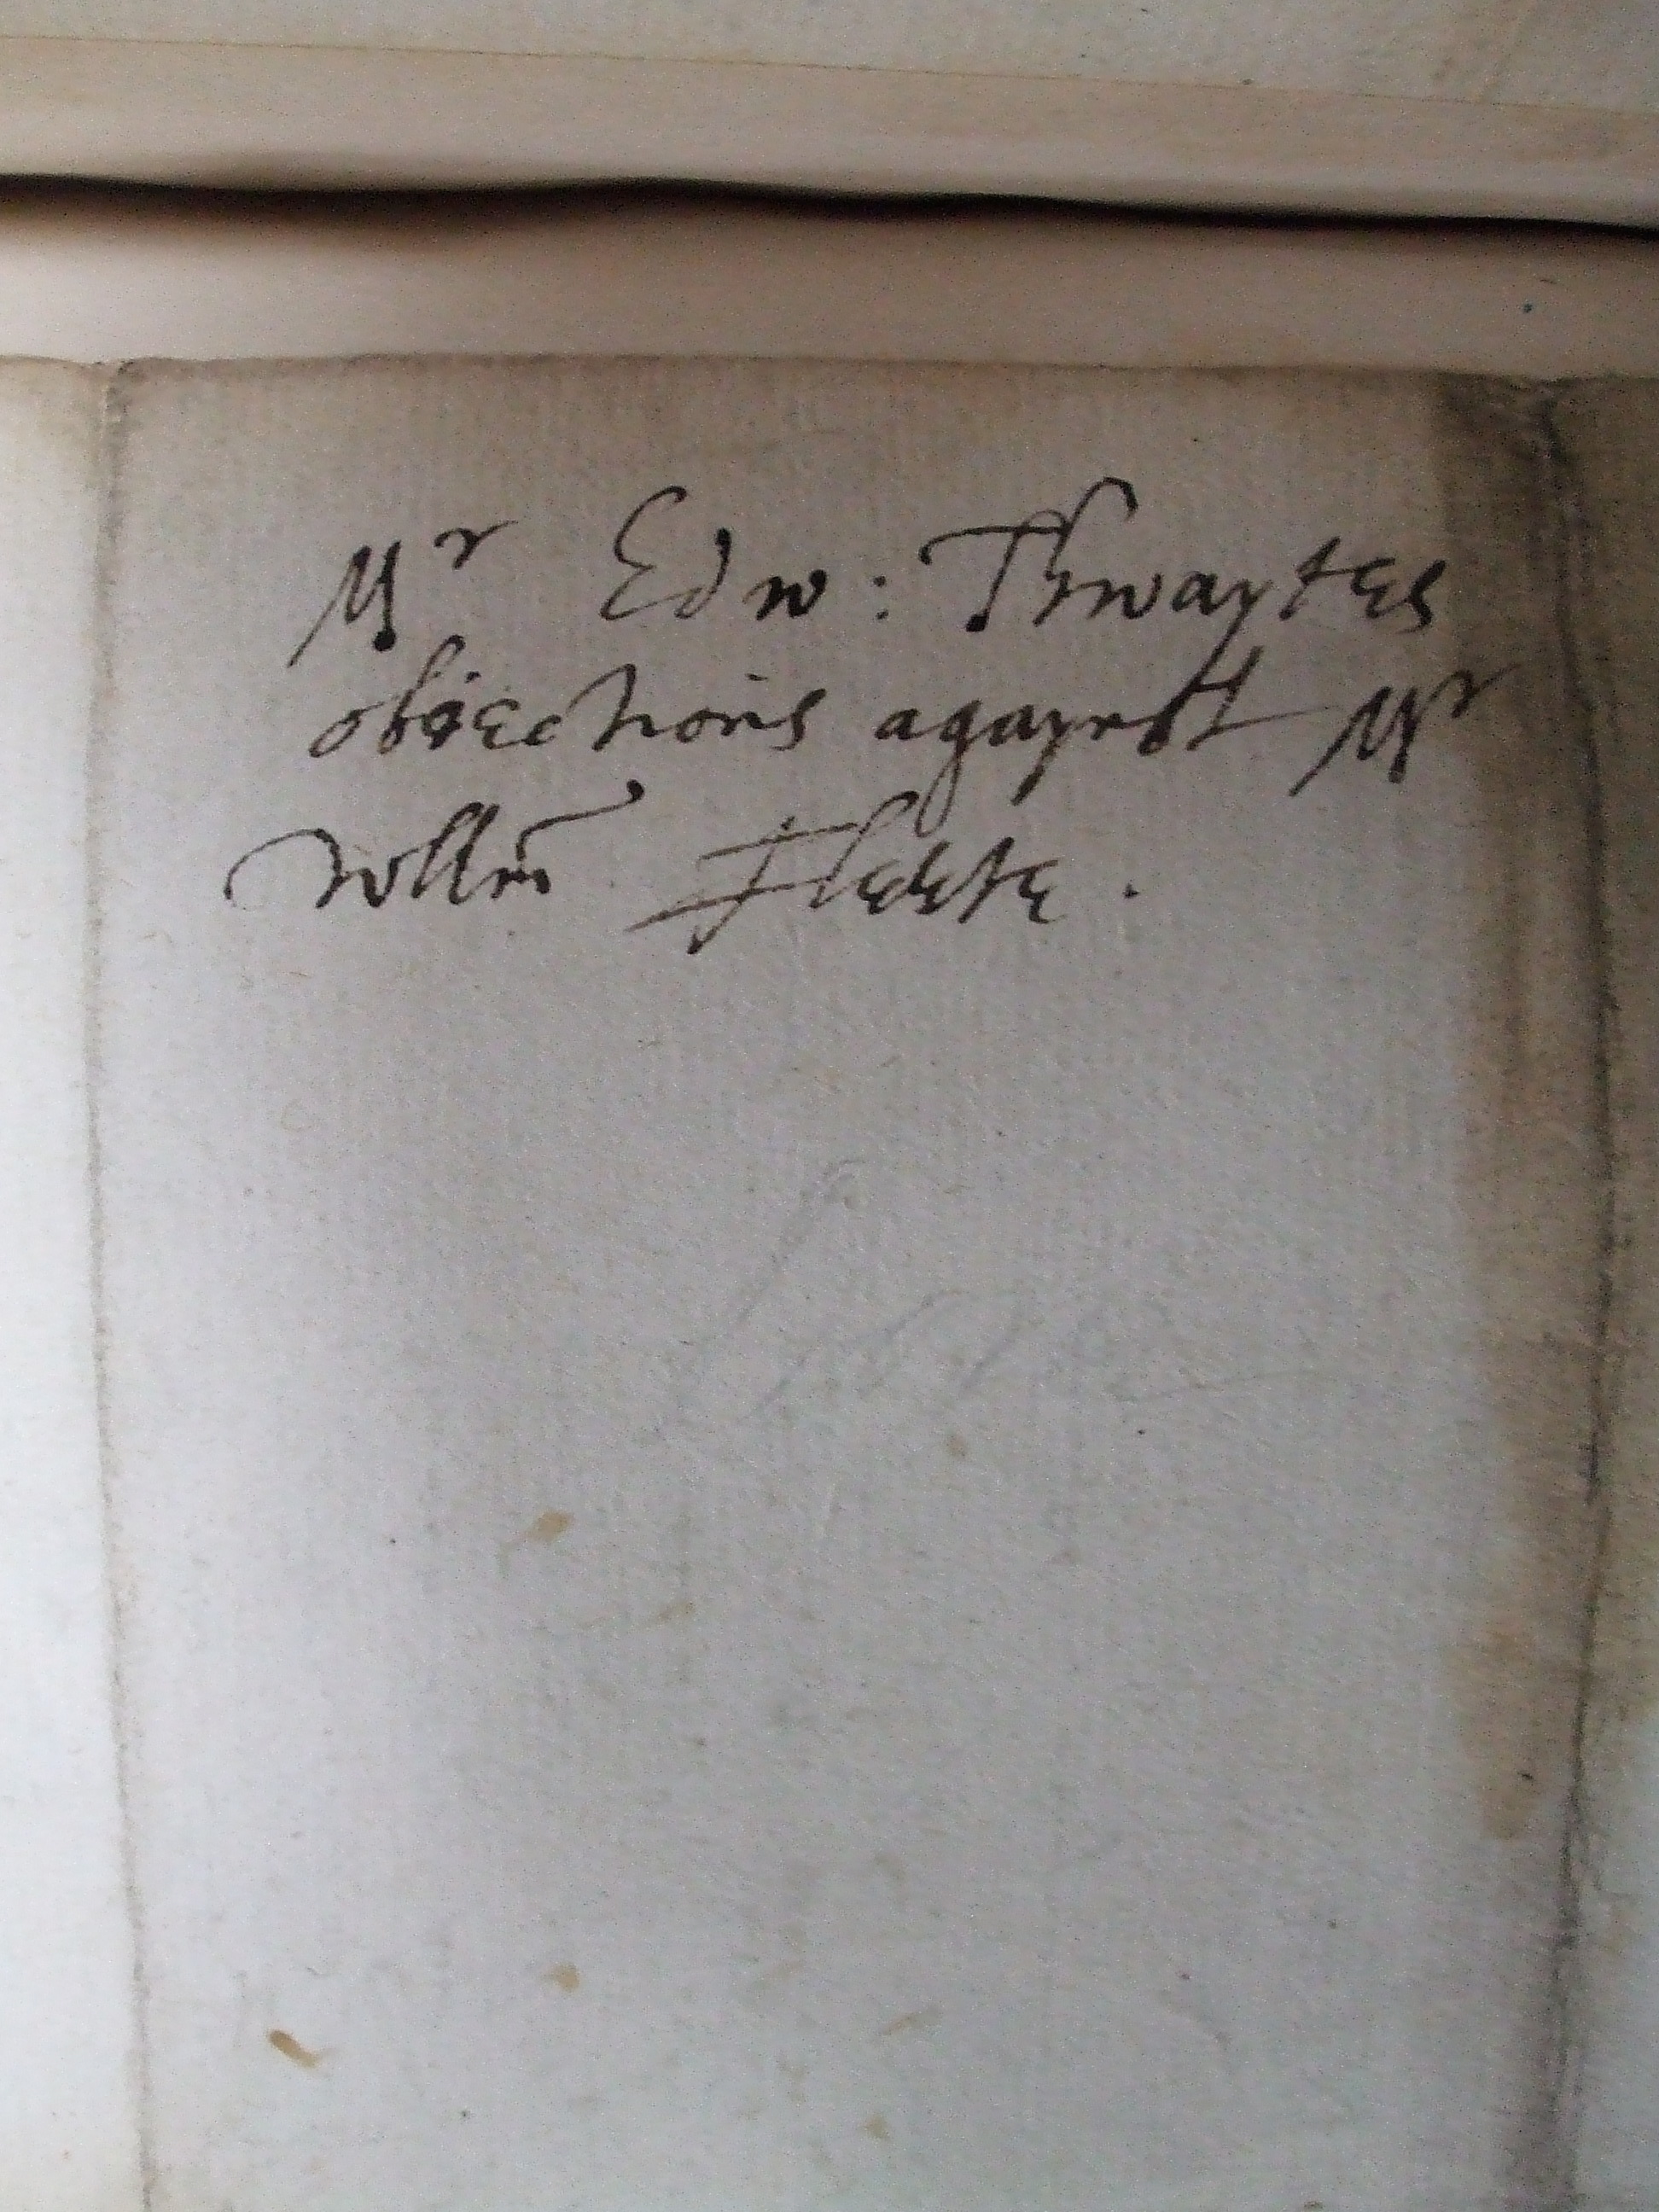 Mr Edw: Thwaytes
obiections agaynst Mr
Willm Fleete.